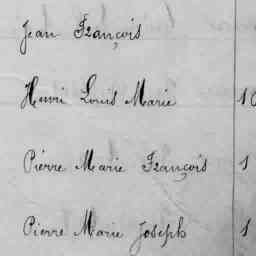 Jean François
Henri Louis Marie 10
Pierre Marie François 1
Pierre Marie Joseph 1